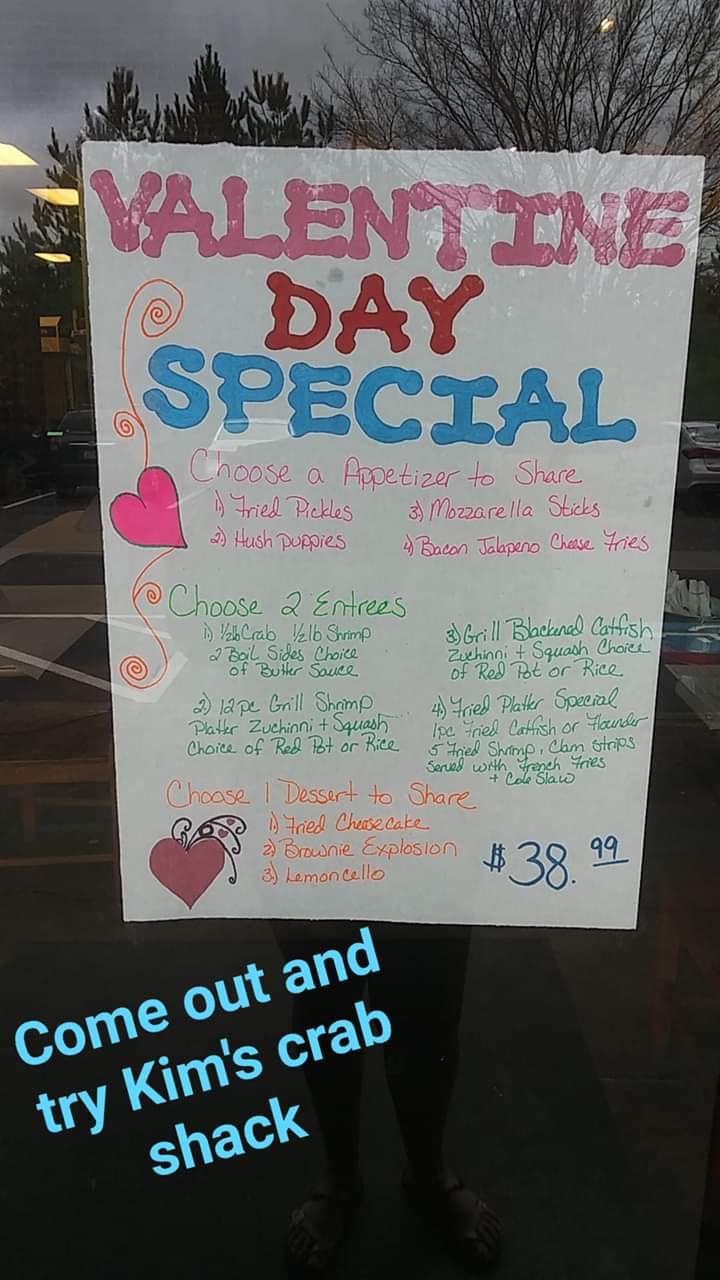 VALENTINE
DAY
SPECIAL
Choose a Appetizer to Share
1) Fried Pickles
2) Hush puppies
3) Mozzarella Sticks
4) Bacon Jalapeno Cheese Fries
Choose 2 Entrees
1) 1/2lb Crab 1/2lb Shrimp
2 Boil Sides Choice
of Butter Sauce
2) 12pc Grill Shrimp
Platter Zuchinni + Squash
Choice of Red Pot or Rice
3) Grill Blackened Catfish
Zuchinni + Squash Choice
of Red Pot or Rice
4) Fried Platter Special
1pc Fried Catfish or Flounder
5 Fried Shrimp, Clam Strips
Served with French Fries
+ Cole Slaw
Choose 1 Dessert to Share
1) Fried Cheesecake
2) Brownie Explosion
3) Lemoncello
$38.99
Come out and
try Kim's crab
shack